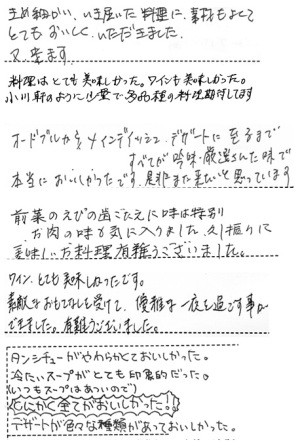 きめ細かい、いき届いた料理に、素材もよくて
とてもおいしく、いただきました。
又、来ます。
料理はとても美味しかった。ワインも美味しかった。
小川軒のように少量で多品種の料理期待してます
オードブルから、メインディッシュ、デザートに至るまで
すべてが吟味・厳選された味で
本当においしかったです。是非また来たいと思っています
前菜のえびの歯ごたえに味は特別
お肉の味も気に入りました 久し振りに
美味しいお料理有難うございました。
ワイン、とても美味しかったです。
素敵なおもてなしを受けて、優雅な一夜を過ごす事が
できました。有難うございました。
タンシチューがやわらかくておいしかった。
冷たいスープがとても印象的だった。
(いつもスープはあついので)
とにかく全てがおいしかった。
デザートが色々な種類があっておいしかった。